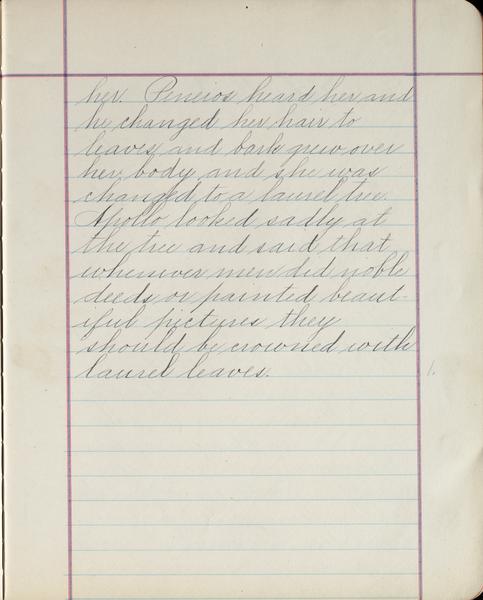 her. Peneios heard her and
he changed her hair to
leaves and bark grew over
her body and she was
changed to a laurel tree.
Apollo looked sadly at
the tree and said that
whenever men did noble
deeds or painted beaut-
iful pictures they
should be crowned with
laurel leaves.